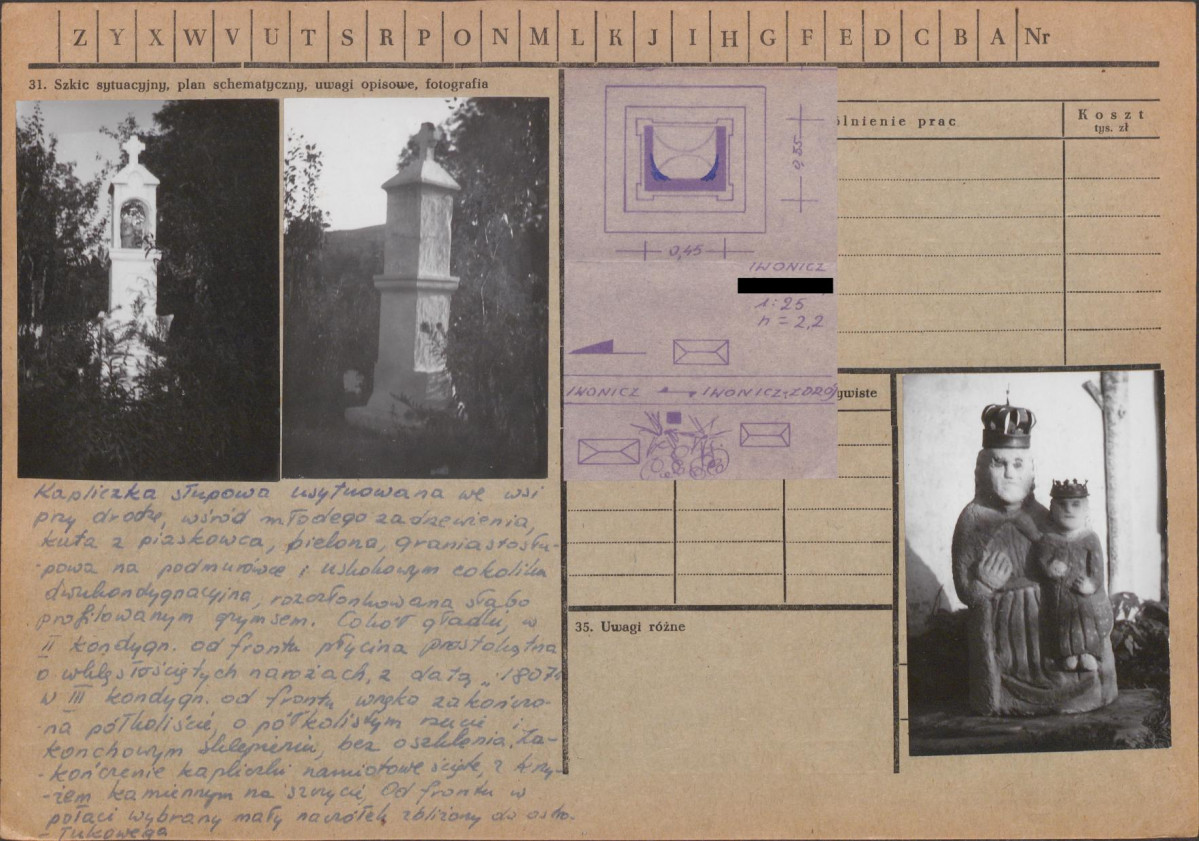 Z Y X W V U T S R P O N M L K J I H G F E D C B A Nr
31. Szkic sytuacyjny, plan schematyczny, uwagi opisowe, fotografia
Kapliczka słupowa usytuowana we wsi
przy drodze, wśród młodego zadrzewienia,
kuta z piaskowca, bielona, graniastosłu-
-powa na podmurówce i uskokowym cokoliku
dwukondygnacyjna, rozczłonkowana słabo
profilowanym gzymsem. Cokół gładki, w
II kondygn. od frontu płycina prostokątna
o wklęsłościętych narożach, z datą „1807"
W III kondygn. od frontu wnęka zakończo-
-na półkoliście, o półkolistym rzucie i
konchowym sklepieniu, bez oszklenia. Za-
-kończenie kapliczki namiotowe ścięte, z krzy-
-żem kamiennym na szczycie. Od frontu w
połaci wybrany mały naczółek zbliżony do ostro-
-łukowego
0,55
0,45
IWONICZ
1:25
h = 2,2
IWONICZ
IWONICZ-ZDRÓJ
ólnienie prac
Koszt
tys. zł
ywiste
35. Uwagi różne